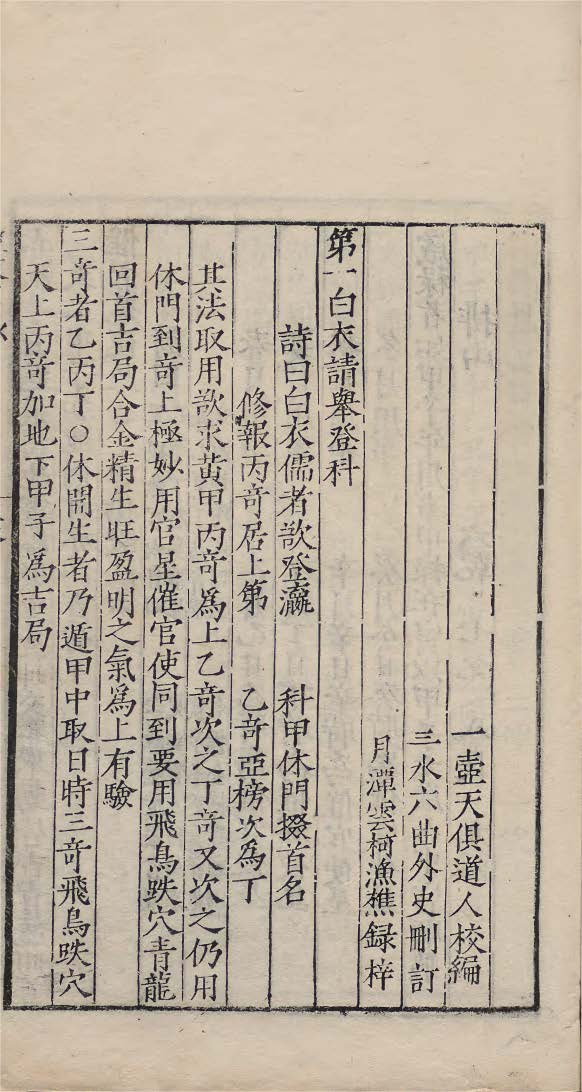 一壺天俱道人校編
三水六曲外史刪訂
月潭雲柯漁樵録梓
第一白衣請舉登科
詩曰白衣儒者欲登瀛　科甲休門掇首名
修報丙奇居上第　乙奇亞榜次為丁
其法取用欲求黃甲丙奇為上乙奇次之丁奇又次之仍用
休門到奇上極妙用官星催官使同到要用飛鳥跌穴青龍
回首吉局合金精生旺盈明之氣為上有驗
三奇者乙丙丁○休開生者乃遁甲中取日時三奇飛鳥跌穴
天上丙奇加地下甲子為吉局